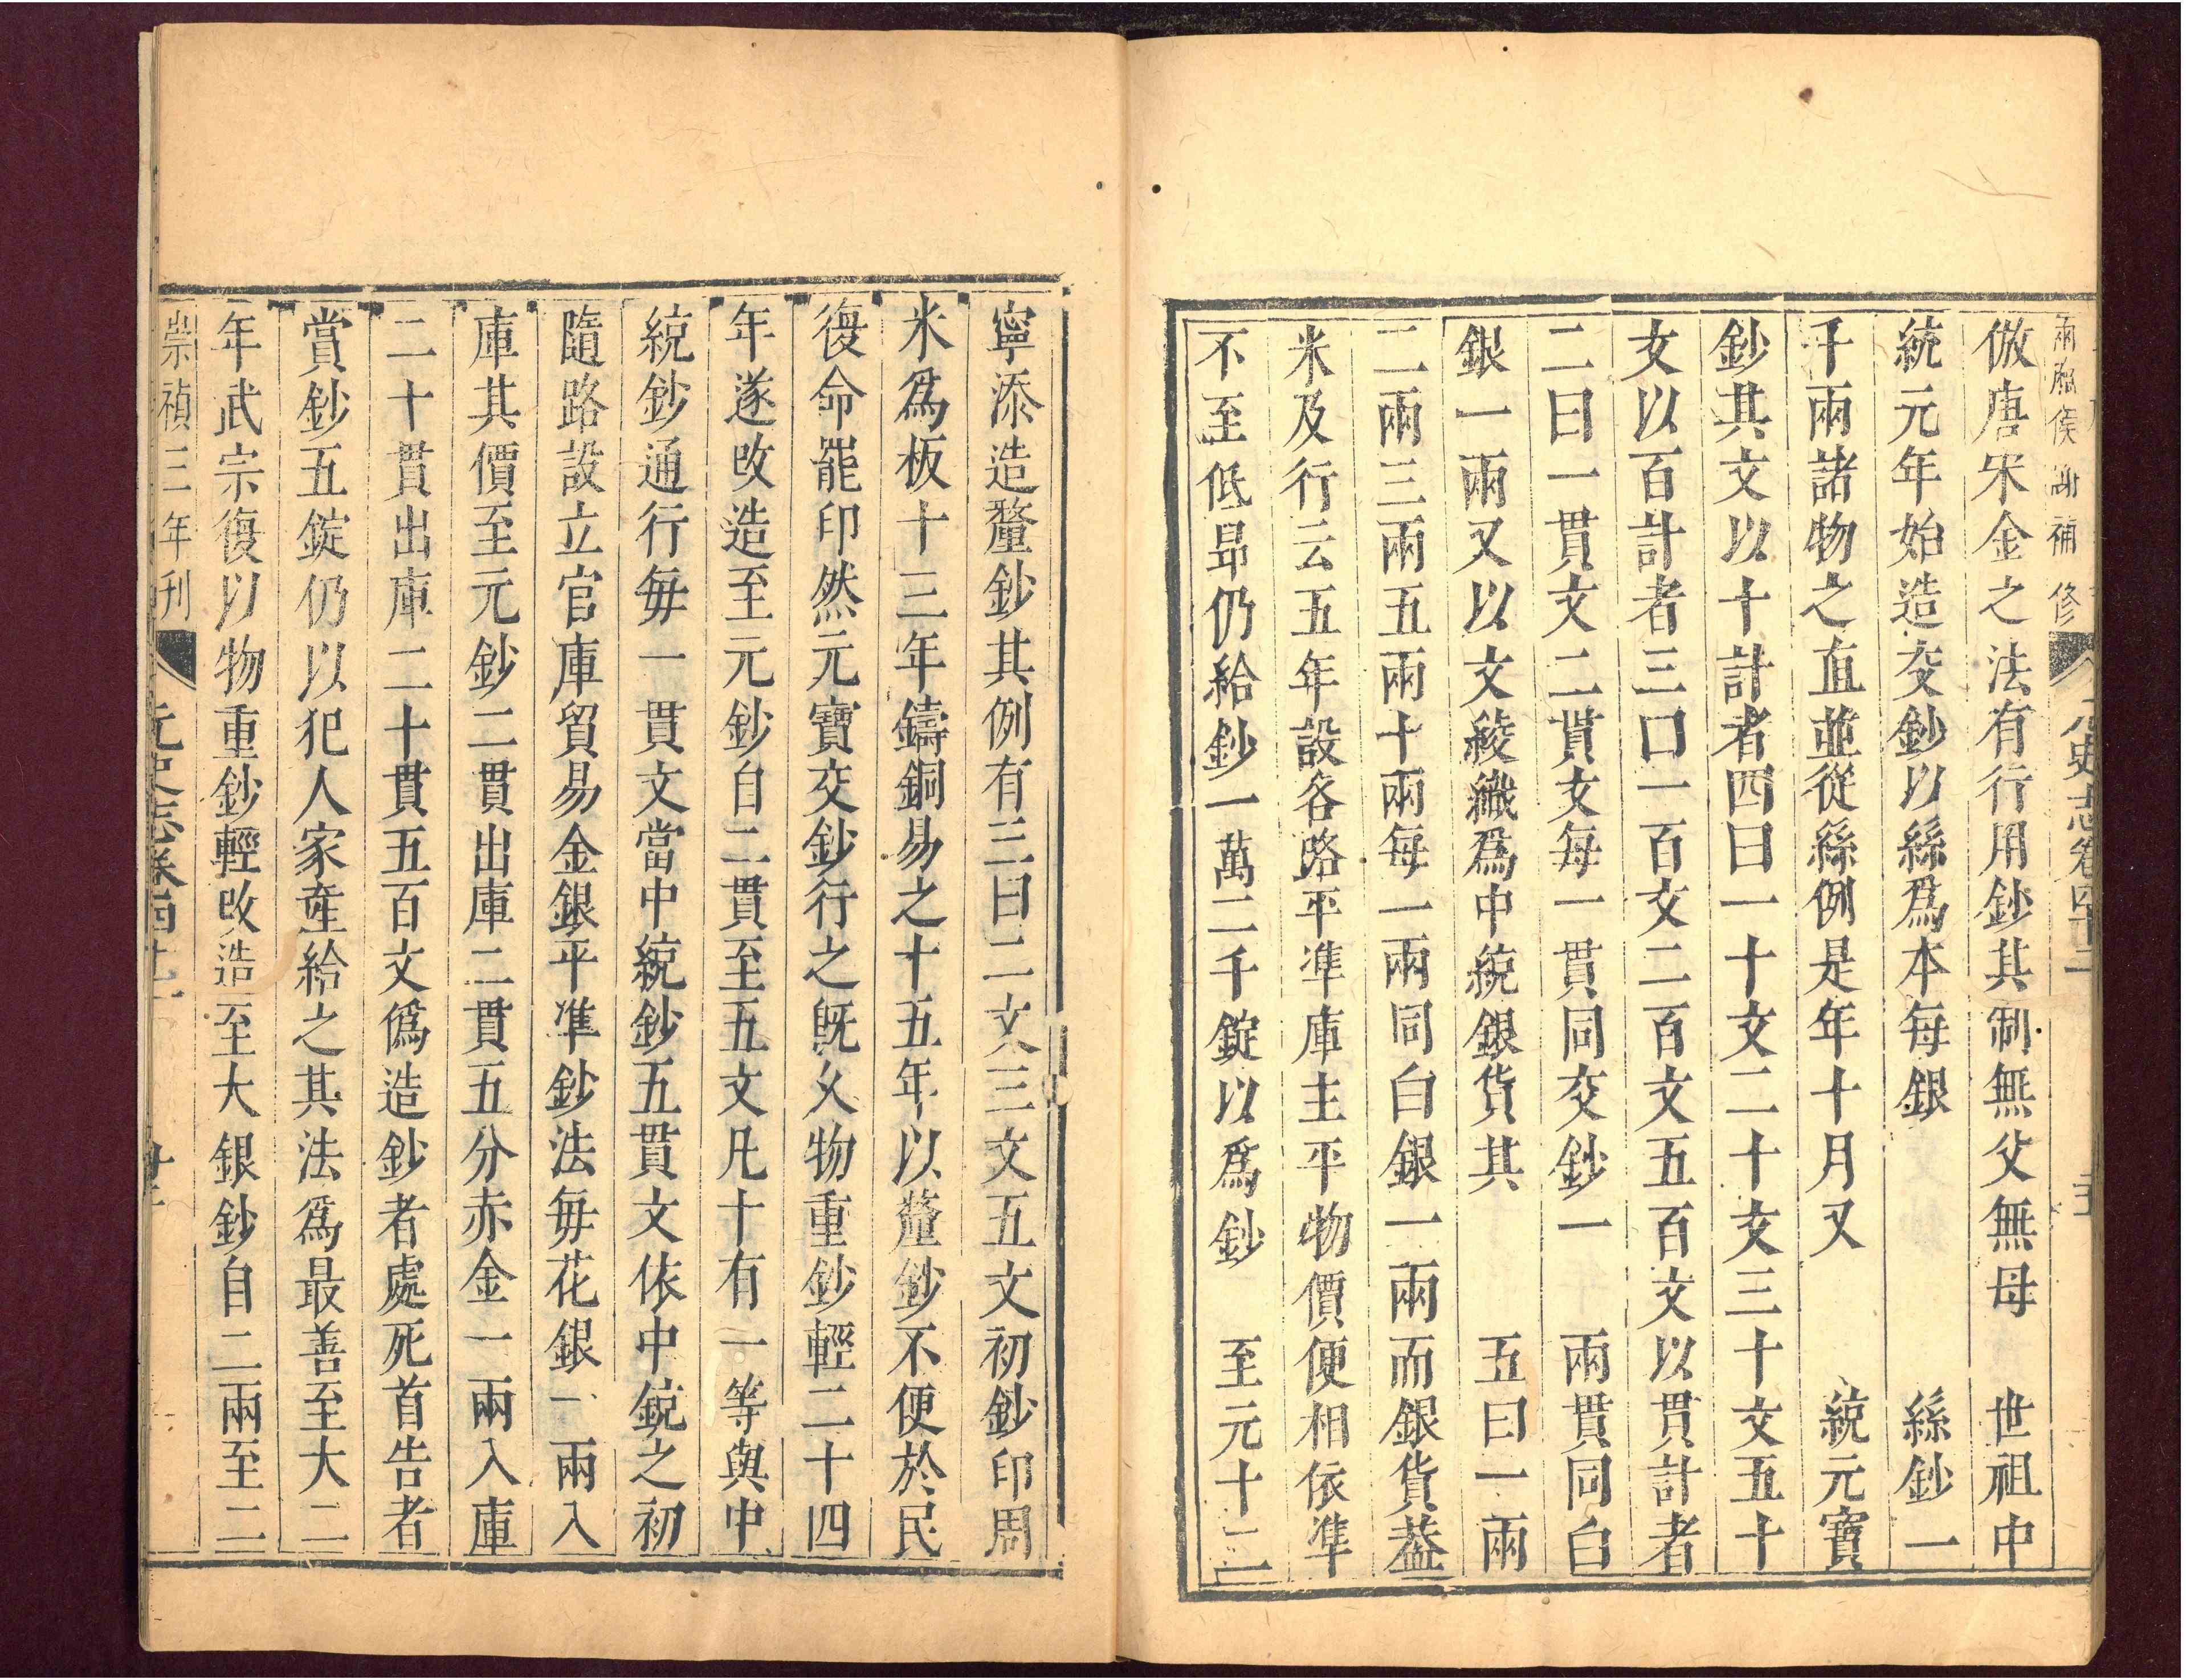 兩 侯 謝 補 修
史志卷 十二
倣唐宋金之法有行用鈔其制無父無母 世祖中
統元年始造交鈔以絲爲本每銀 絲鈔一
千兩諸物之直並從絲例是年十月又 統元寶
鈔其文以十計者四曰一十文二十文三十文五十
文以百計者三口一百文二百文五百文以貫計者
二曰一貫文二貫文每一貫同交鈔一 兩貫同白
銀一兩又以文綾織爲中統銀貨其 五曰一兩
二兩三兩五兩十兩每一兩同白銀一兩而銀貨葢
米及行云五年設各路平準庫主平物價使相依準
不至低昻仍給鈔一萬二千錠以爲鈔 至元十二
寧添造釐鈔其例有三曰二文三文五文初鈔印周
米爲板十三年鑄銅易之十五年以釐鈔不便於民
復命罷印然元寶交鈔行之旣久物重鈔輕二十四
年遂改造至元鈔自二貫至五文凡十有一等與中
統鈔通行每一貫文當中統鈔五貫文依中統之初
隨路設立官庫貿易金銀平準鈔法每花銀一兩入
庫其價至元鈔二貫出庫二貫五分赤金一兩入庫
二十貫出庫二十貫五百文僞造鈔者處死首告者
賞鈔五錠仍以犯人家產給之其法爲最善至大二
年武宗復以物重鈔輕改造至大銀鈔自二兩至二
崇禎三年刊 元史志卷四十二